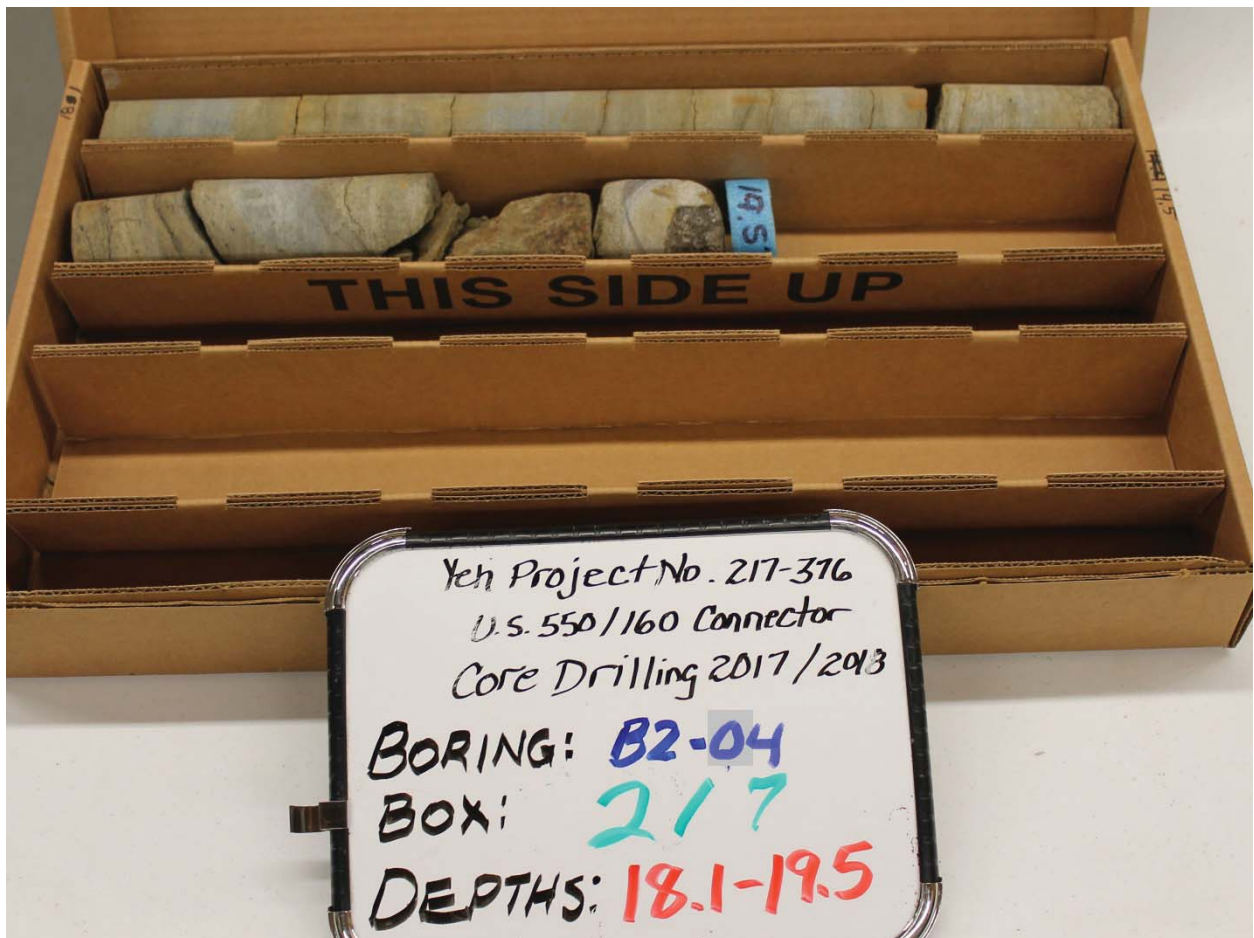 18.1
19.5
19.5
THIS SIDE UP
Yeh Project No. 217-376
U.S. 550/160 Connector
Core Drilling 2017/2018
BORING: B2-04
BOX: 2/7
DEPTHS: 18.1-19.5